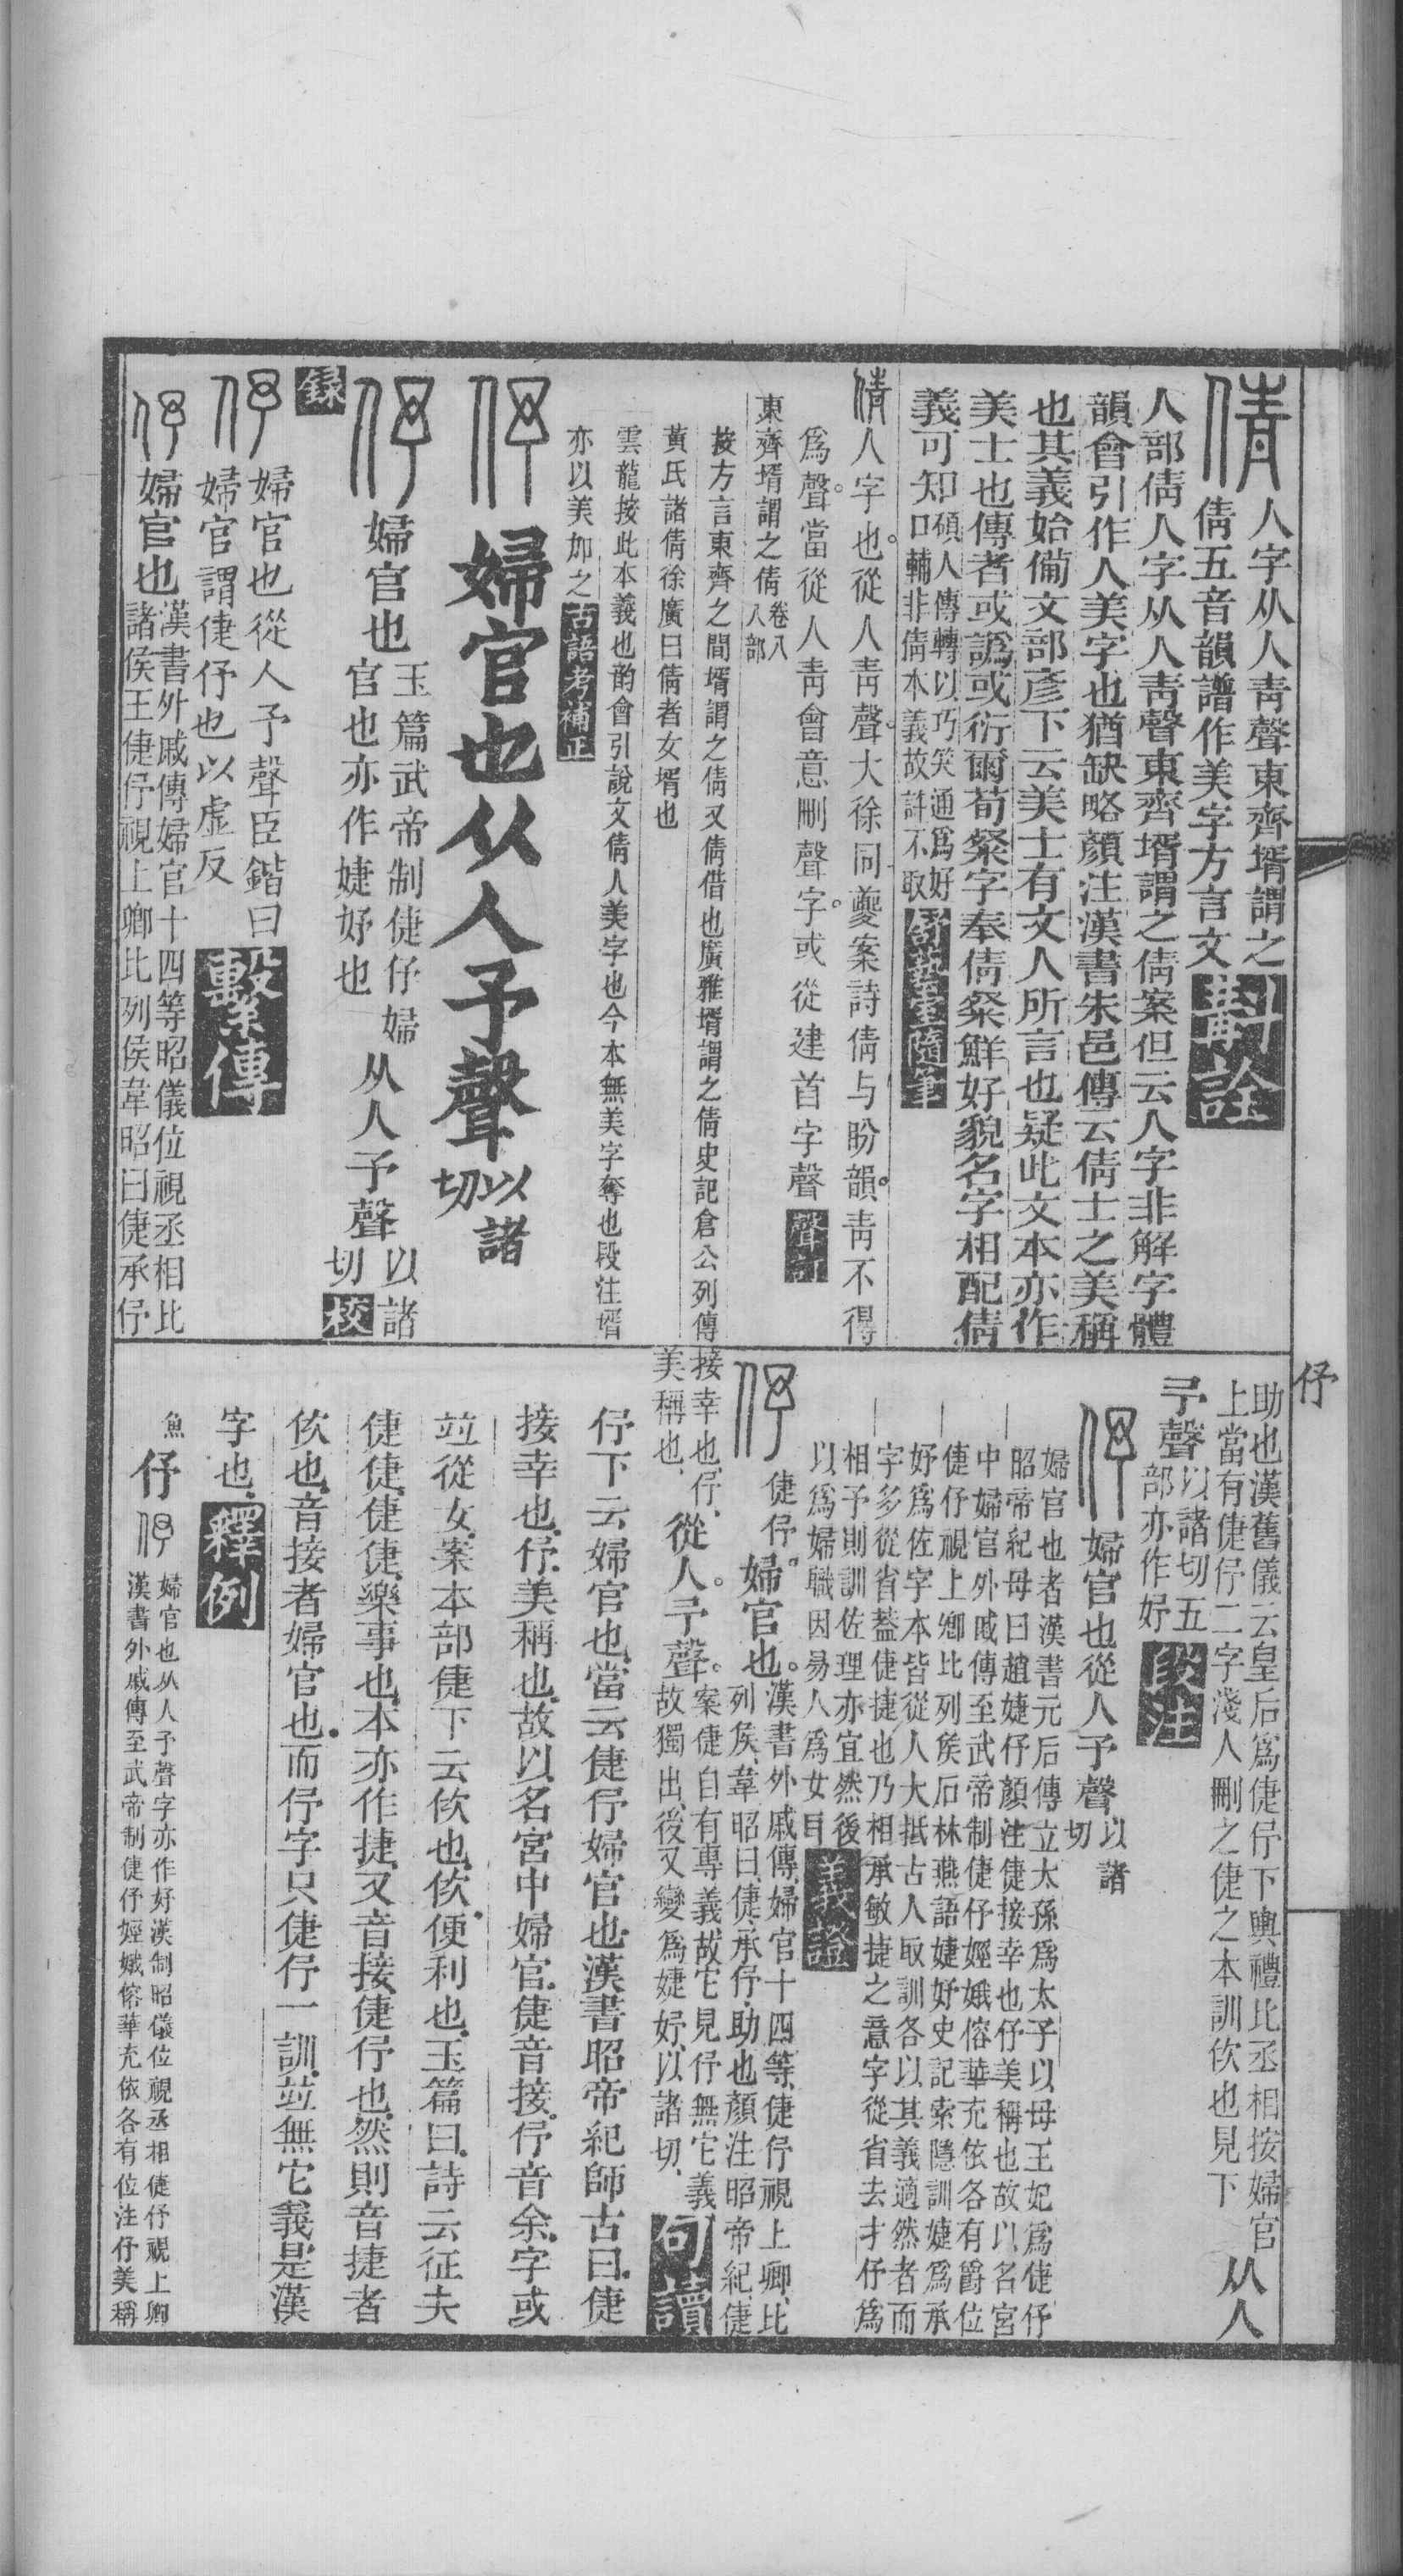 人字从人靑聲東齊壻謂之
倩五音韻譜作美字方言文
斠詮
人部倩人字从人靑聲東齊壻謂之倩案但云人字非解字體
韻會引作人美字也猶缺略顔注漢書朱邑傳云倩士之美稱
也其義始備文部彥下云美士有文人所言也疑此文本亦作
美士也傳者或譌或衍爾荀粲字奉倩粲鮮好貌名字相配倩
義可知
碩人傳轉以巧笑通爲好
口輔非倩本義故許不取
舒藝室隨筆
人字也。從人靑聲。大徐同夔案詩倩与盼韻。靑不得
爲聲。當從人靑會意刪聲字。或從建首字聲
聲訂
東齊壻謂之倩
卷八
人部
按方言東齊之間壻謂之倩又倩借也廣雅壻謂之倩史記倉公列傳
黃氏諸倩徐廣曰倩者女壻也
雲龍按此本義也韵會引說文倩人美字也今本無美字奪也段注壻
亦以美加之
古語考補正
婦官也从人予聲
以諸
切
婦官也
玉篇武帝制倢伃婦
官也亦作婕妤也
从人予聲
以諸
切
校
錄
婦官也從人予聲臣鍇曰
婦官謂倢伃也以虛反
繫傳
婦官也
漢書外戚傳婦官十四等昭儀位視丞相比
諸侯王倢伃視上卿比列侯韋昭曰倢承伃
伃
助也漢舊儀云皇后爲倢伃下輿禮比丞相按婦官
上當有倢伃二字淺人刪之倢之本訓佽也見下
从人
予聲
以諸切五
部亦作妤
段注
婦官也從人予聲
以諸
切
婦官也者漢書元后傳立太孫爲太子以母王妃爲倢伃
昭帝紀母曰趙婕伃顏注倢接幸也伃美稱也故以名宮
中婦官外戚傳至武帝制倢伃娙娥傛華充依各有爵位
倢伃視上卿比列矦石林燕語婕妤史記索隱訓婕爲承
妤爲佐字本皆從人大抵古人取訓各以其義適然者而
字多從省蓋倢捷也乃相承敏捷之意字從省去才伃爲
相予則訓佐理亦宜然後
以爲婦職因易人爲女目
義證
倢伃。婦官也。
漢書外戚傳、婦官十四等、倢伃視上卿、比
列矦、韋昭曰、倢、承、伃、助也、顏注昭帝紀、倢
接幸也、伃、
美稱也、
從人。予聲。
案倢自有專義、故它見伃無它義
故獨出、後又變爲婕妤、以諸切、
句讀
伃下云婦官也、當云倢伃婦官也、漢書昭帝紀師古曰、倢
接幸也、伃、美稱也、故以名宮中婦官、倢音接、伃音余、字或
竝從女、案本部倢下云佽也、佽、便利也、玉篇曰、詩云征夫
倢倢、倢倢、樂事也、本亦作捷、又音接、倢伃也、然則音捷者
佽也、音接者婦官也、而伃字只倢伃一訓、竝無它義、是漢
字也、
釋例
魚
伃
婦官也从人予聲字亦作妤漢制昭儀位視丞相倢伃視上卿
漢書外戚傳至武帝制倢伃娙娥傛華充依各有位注伃美稱